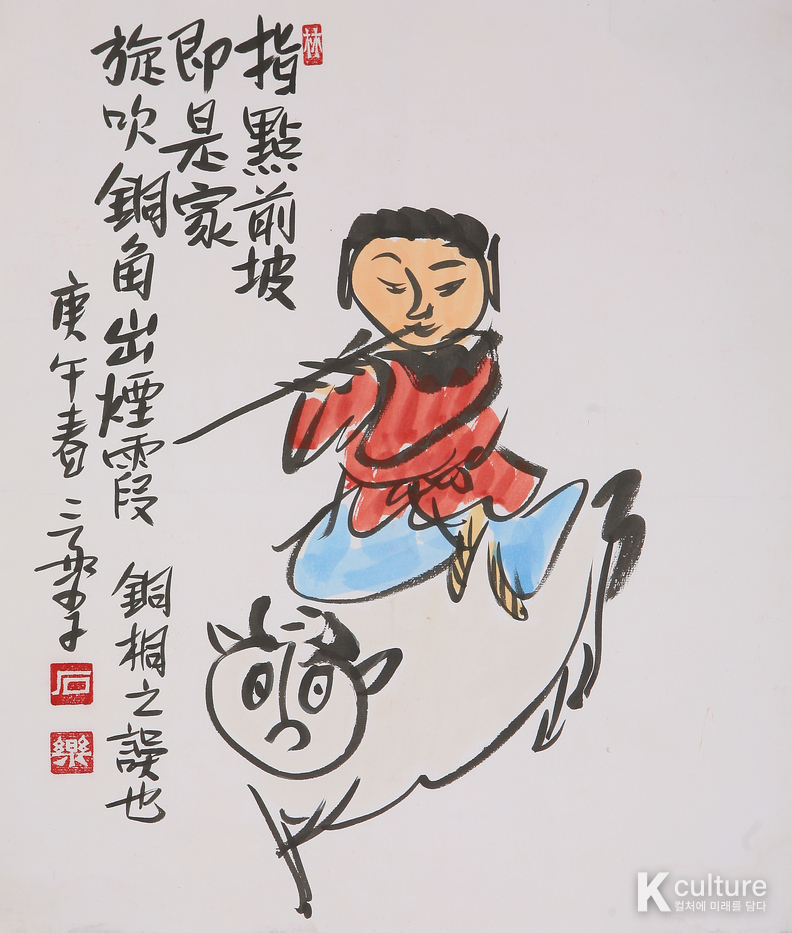 指點前坡
即是家
旋吹銅角出煙霞
銅桐之誤也
庚午春 三樂子
林
石
樂
K culture
컬처에 미래를 담다